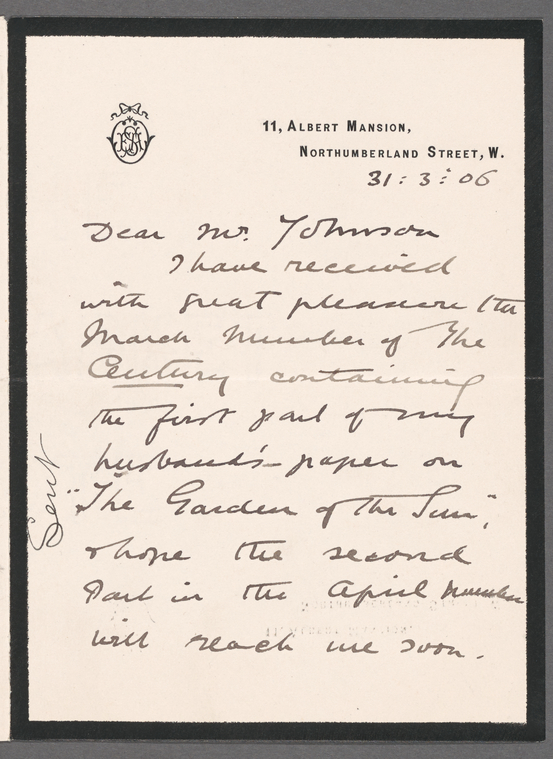 11, ALBERT MANSION,
NORTHUMBERLAND STREET, W.
31 : 3 : 06
Dear Mr. Johnson
I have received
with great pleasure the
March Number of The
Century containing
the first part of my
husband's paper on
"The Garden of the Sun",
& hope the second
Part in the April Number
will reach me soon.
Sent